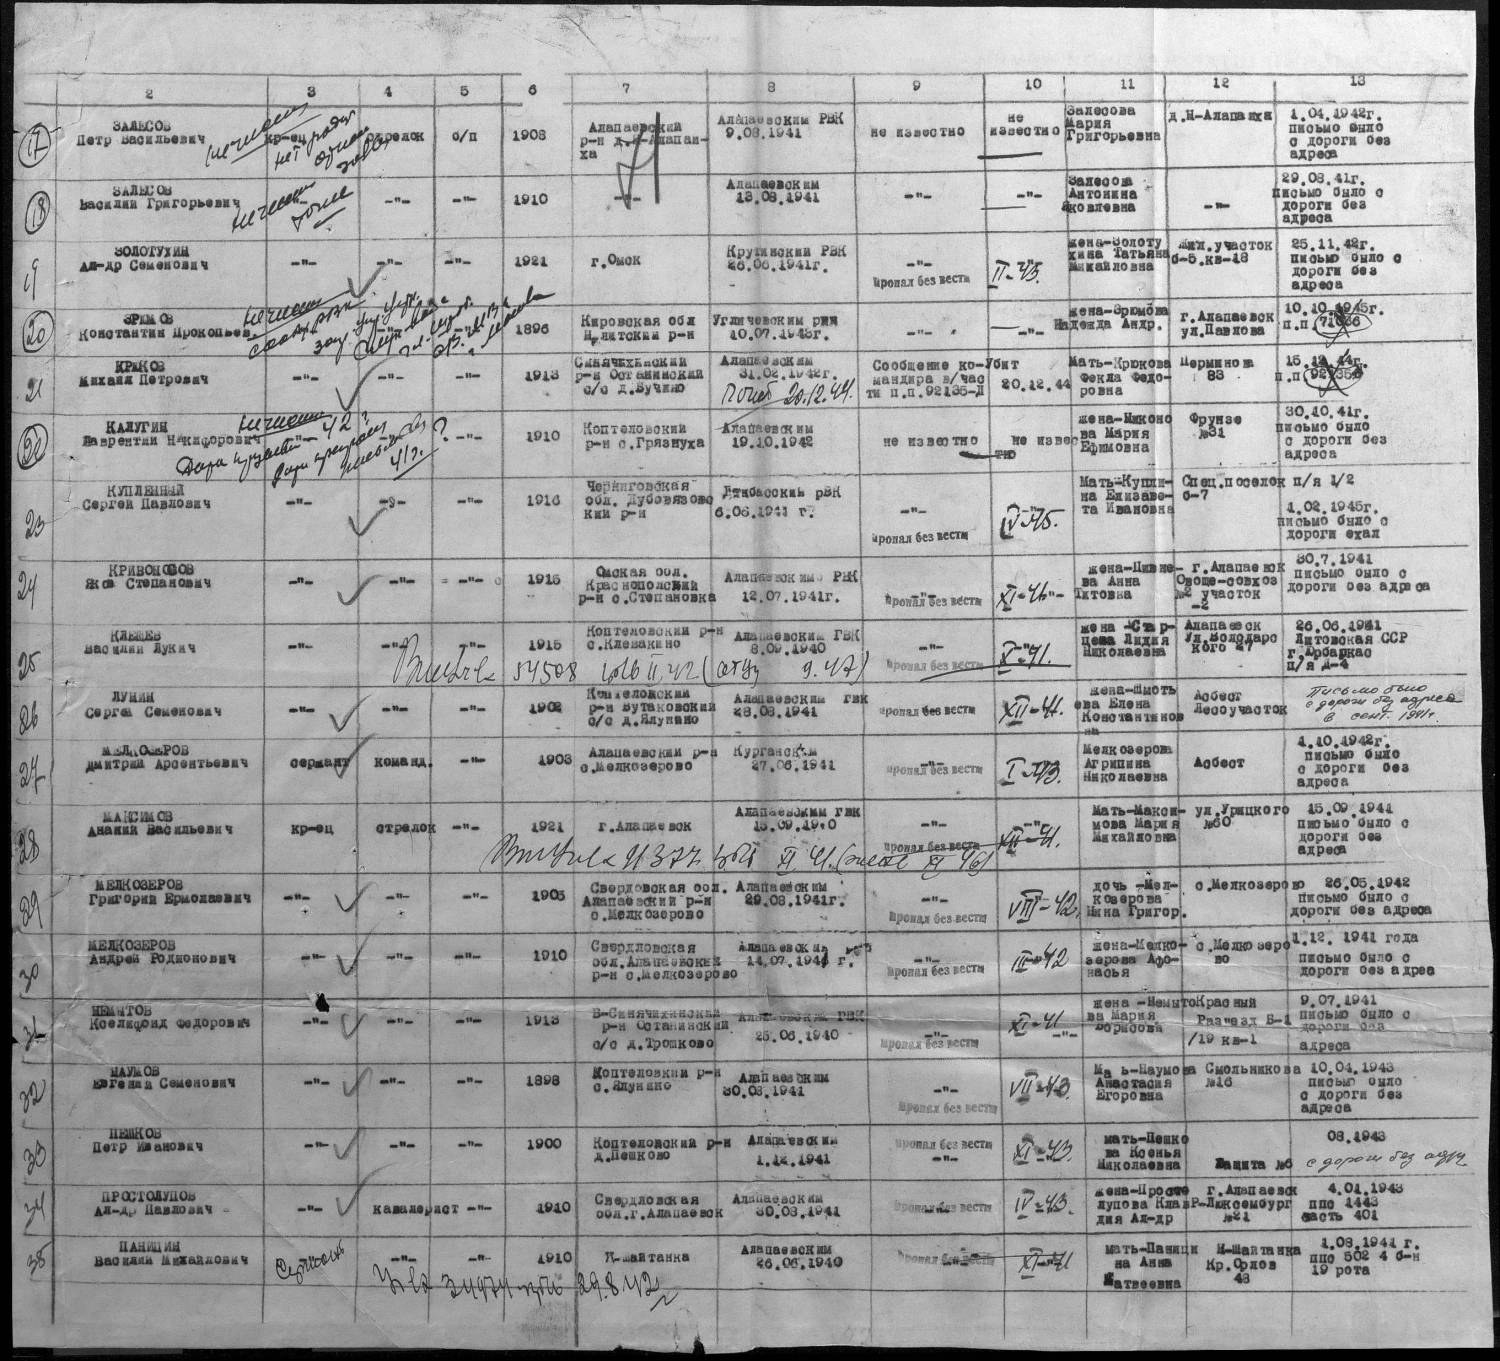 2 3 4 5 6 7 8 9 10 11 12 13
17 ЗАЛЕСОВ
Петр Васильевич
кр-ец
стрелок
о/п
1908
Алапаевский
р-н д.Н-Алапаи-
ха
Алапаевским РВК
9.08.1941
не известно
не
известно
Залесова
Мария
Григорьевна
д.Н-Алапаиха
1.04.1942г.
письмо было
с дороги без
адреса
18 ЗАЛЕСОВ
Василий Григорьевич
-"-
-"-
1910
-"-
Алапаевским
13.08.1941
-"-
-"-
Залесова
Антонина
Яковлевна
-"-
29.08.41г.
письмо было с
дороги без
адреса
19 ЗОЛОТУХИН
Ал-др Семенович
-"-
-"-
-"-
1921
г.Омск
Крутинский РВК
26.06.1941г.
-"-
пропал без вести
II-43.
жена-Золоту
хина Татьяна
Михайловна
жил.участок
б-5.кв-18
25.11.42г.
письмо было с
дороги без
адреса
20 ЗРЮМОВ
Константин Прокопьев
1896
Кировская обл
Угличевским рвк
10.07.1943г.
-"-
жена-Зрюмова
Надежда Андр.
г.Алапаевск
ул.Павлова
10.10.1945г.
п.п 71066
21 КРЮКОВ
Михаил Петрович
-"-
-"-
-"-
1913
Синячихинский
р-н Останинский
с/с д.Бучино
Алапаевским
31.02.1942г.
Погиб 20.12.44.
Сообщение ко-
мандира в/час
ти п.п.92135-Д
Убит
20.12.44
Мать-Крюкова
Фекла Федо-
ровна
Перминова
83
15.12.44г.
п.п
КАЛУГИН
Лаврентий Никифорович
-"-
-"-
1910
Коптеловский
р-н с.Грязнуха
Алапаевским
19.10.1942
не известно
не извес
тно
жена-Миконо
ва Мария
Ефимовна
Фрунзе
№31
30.10.41г.
письмо было
с дороги без
адреса
23 КУПЛЕННЫЙ
Сергей Павлович
-"-
-"-
-"-
1916
Черниговская
обл. Дубовязово
кий р-н
6.06.1941 г.
-"-
пропал без вести
IV-45.
Мать-Купли-
на Елизаве-
та Ивановна
Спец.поселок
б-7
п/я 1/2
1.02.1945г.
письмо было с
дороги ехал
24 КРИВОНОСОВ
Яков Степанович
-"-
-"-
-"-
1915
Омская обл.
Краснопольский
р-н с.Степановка
Алапаевскимо РВК
12.07.1941г.
пропал без вести
жена-Пивне-
ва Анна
Титовна
г.Алапаевск
Овоще-совхоз
№2 участок
-2
30.7.1941
письмо было с
дороги без адреса
25 КЛЕЩЕВ
Василий Лукич
-"-
-"-
-"-
1915
Коптеловский р-н
с.Клевакино
Алапаевским ГВК
8.09.1940
-"-
пропал без вести
X-41.
жена -Стар-
цева Лидия
Николаевна
Алапаевск
Ул.Володарс
кого 27
26.06.1941
Литовская ССР
г.Юрбаркас
п/я Д-4
26 ЛУНИН
Сергей Семенович
-"-
-"-
-"-
1902
Коптеловский
р-н Бутаковский
с/с д.Ялунино
Алапаевским ГВК
28.08.1941
пропал без вести
XII-41.
жена-Шмоть
ева Елена
Константинов
на
Асбест
Лесоучасток
Письмо было
с дороги без адреса
в сент. 1941г.
27 МЕЛКОЗЕРОВ
Дмитрий Арсентьевич
сержант
команд.
-"-
1903
Алапаевский р-н
с.Мелкозерово
Курганским
27.06.1941
-"-
пропал без вести
I-43.
Мелкозерова
Агрипина
Николаевна
Асбест
1.10.1942г.
письмо было
с дороги без
адреса
28 МАКСИМОВ
Ананий Васильевич
кр-ец
стрелок
-"-
1921
г.Алапаевск
Алапаевским ГВК
15.09.1940
-"-
пропал без вести
XII-41.
Мать-Макси-
мова Мария
Михайловна
ул.Урицкого
№60
15.09.1941
письмо было с
дороги без
адреса
29 МЕЛКОЗЕРОВ
Григорий Ермолаевич
-"-
-"-
-"-
1905
Свердовская обл.
Алапаевский р-н
с.Мелкозерово
Алапаевским
29.08.1941г.
-"-
пропал без вести
VIII-42.
дочь -Мел-
козерова
Нина Григор.
с.Мелкозерово
26.05.1942
письмо было с
дороги без адреса
30 МЕЛКОЗЕРОВ
Андрей Родионович
-"-
-"-
-"-
1910
Свердловская
обл.Алапаевский
р-н с.Мелкозерово
Алапаевским
14.07.1941 г.
-"-
пропал без вести
III-42
жена-Мелко-
зерова Афо-
насья
с.Мелкозеро
во
1.12. 1941 года
письмо было с
дороги без адреа
31 НЕМЫТОВ
Кселифонд Федорович
-"-
-"-
-"-
1913
В-Синячихинский
р-н Останинский
с/с д.Трошково
Алапаевским ГВК
25.06.1940
-"-
пропал без вести
XI-41
-"-
жена -Немыто
ва Мария
Борисова
Красный
Разъезд Б-1
/19 кв-1
9.07.1941
письмо было с
дороги без
адреса
32 НАУМОВ
Евгений Семенович
-"-
-"-
-"-
1898
Коптеловкий р-н
с.Ялунино
Алапаевским
30.08.1941
-"-
пропал без вести
VII-43.
Ма ь-Наумова
Анастасия
Егоровна
Смольникова
№16
10.04.1943
письмо было
с дороги без
адреса
33 ПЕШКОВ
Петр Иванович
-"-
-"-
-"-
1900
Коптеловский р-н
д.Пешково
Алапаевским
1.12.1941
пропал без вести
-"-
XI-43.
мать-Пешко
ва Ксенья
Николаевна
Защита №6
08.1943
с дороги без адр.
34 ПРОСТОЛУПОВ
Ал-др Павлович
-"-
кавалерист
-"-
1910
Свердловская
обл.г.Алапаевск
Алапаевским
30.08.1941
пропал без вести
IV-43.
жена-Просто
лупова Клав
дия Ал-др
г.Алапаевск
Р-Люксембург
№21
4.01.1943
ппс 1443
часть 401
35 ПАНИЦИН
Василий Михайлович
Сержант
-"-
-"-
1910
Н-Шайтанка
Алапаевским
26.06.1940
пропал без вести
XI-41
мать-Паници
на Анна
Матвеевна
Н-Шайтанка
Кр.Орлов
48
1.08.1941 г.
ппс 502 4 б-н
19 рота